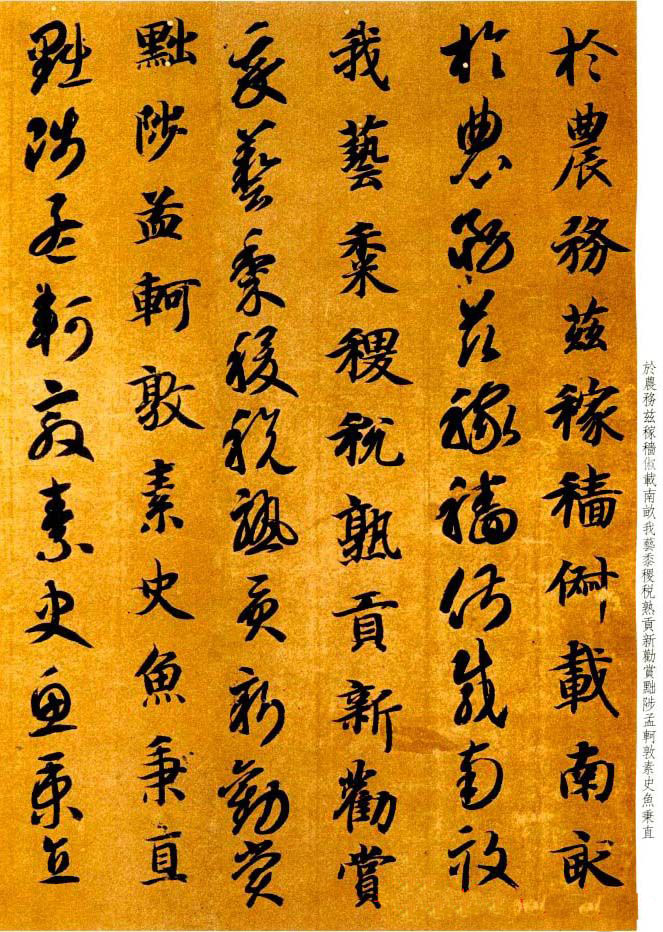 於農務茲稼穡俶載南畝我藝黍稷稅熟貢新勸賞黜陟孟軻敦素史魚秉直
於農務茲稼穡俶載南畝
於農務茲稼穡俶載南畝
我藝黍稷稅熟貢新勸賞
我藝黍稷稅熟貢新勸賞
黜陟孟軻敦素史魚秉直
黜陟孟軻敦素史魚秉直